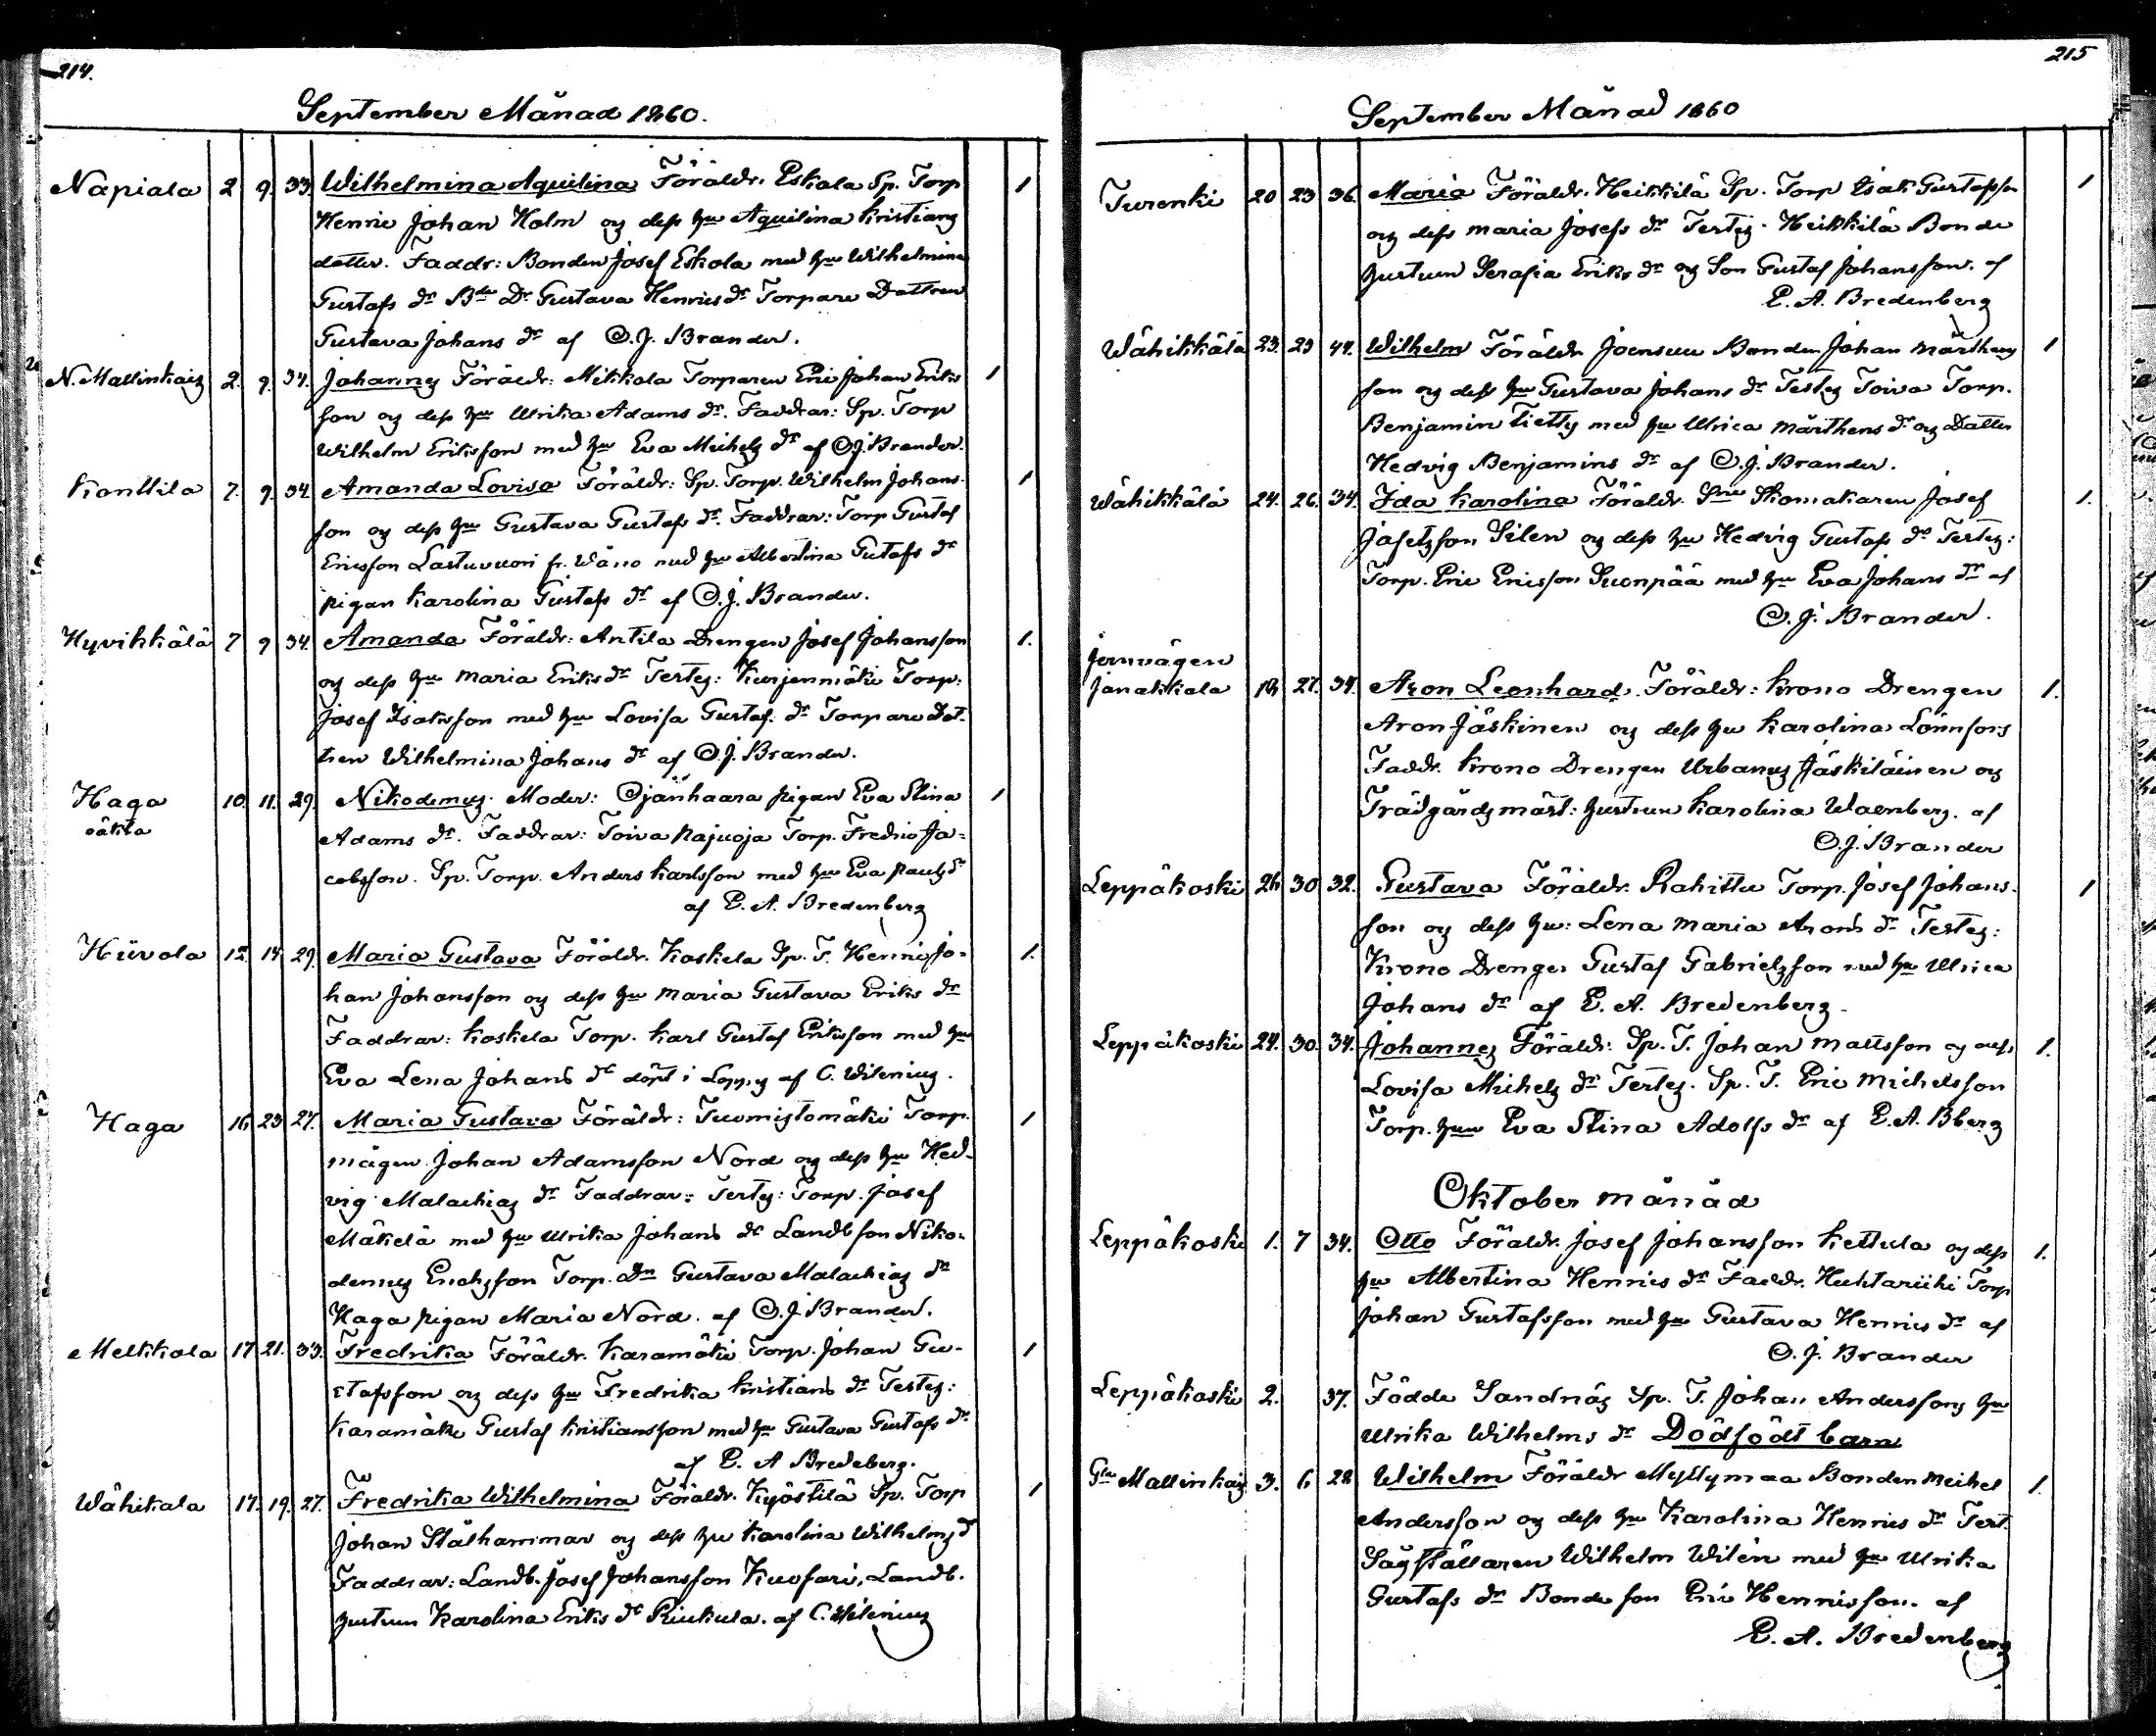 214.
September Månad 1860.
Napiala 2 9. 33 Wilhelmina Aquilina Föräldr. Eskola Sp. Torp 1
Henric Johan Holm og dess hu Aquilina Kristians
dotter. Faddr: Bonden Josef Eskola med hu Wilhelmina
Gustafs dr Bde Dr Gustava Henrics dr Torpare Dottren
Gustava Johans dr af O.J. Brander.
N. Mallinkais 2. 9. 34. Johannes Föräldr: Mikkola Torparen Eric Johan Eriks 1
son og dess hu Ulrika Adams dr. Faddrar: Sp. Torp
Wilhelm Eriksson med hu Eva Michels dr af O.J. Brander.
Konttila 7. 9. 34. Amanda Lovisa Föräldr: Sp. Torp. Wilhelm Johans- 1
son og dess hu Gustava Gustafs dr. Faddrar: Torp Gustaf
Ericsson Lastuvuori fr. Wäno med hu Albertina Gutafs dr
pigan Karolina Gustafs dr af O.J. Brander.
Hyvikkälä 7 9 34. Amanda Föräldr: Antila Drengen Josef Johansson 1.
og dess hu Maria Eriks dr Testes: Kurjenmäki Torp:
Josef Isaksson med hu Lovisa Gustaf. dr Torpare Dot-
tren Wilhelmina Johans dr af O.J. Brander.
Haga 10. 11. 29. Nikodemus. Moder: Ojänhaara pigan Eva Stina 1
oäkta Adams dr. Faddrar: Toiva Pajuoja Torp. Fredric Ja-
cobsson. Sp. Torp. Anders Karlsson med hu Eva Pauls dr
af E. A. Bredenberg
Hiivola 12 14 29. Maria Gustava Föräldr. Koskela Sp. T. Henric Jo- 1.
han Johansson og dess hu Maria Gustava Eriks dr
Faddrar: Koskela Torp. Karl Gustaf Eriksson med hu
Eva Lena Johans dr döpt i Loppis af C. Wilenius.
Haga 16 23 27. Maria Gustava Föräldr: Tuomistomäki Torp. 1
mågen Johan Adamsson Nord og dess hu Hed-
vig Malachias dr Faddrar: Testes: Torp. Josef
Mäkelä med hu Ulrika Johans dr Landb son Niko-
demus Enochsson Torp. Dr Gustava Malachias dr
Haga pigan Maria Nord. af O.J. Brander.
Melkkola 17 21. 33. Fredrika Föräldr. Karamäki Torp. Johan Gu- 1
stafsson og dess hu Fredrika Kristians dr Testes:
Karamäki Gustaf Kristiansson med hu Gustava Gustafs dr
af E. A Bredeberg.
Wähikala 17. 19. 27. Fredrika Wilhelmina Föräldr. Kyöstilä Sp. Torp 1
Johan Stålhammar og dess hu Karolina Wilhelms d
Faddrar: Landb. Josef Johansson Kuosari, Landb.
hustrun Karolina Eriks dr Riukula. af C. Wilenius
215
September Månad 1860
Turenki 20 23 36. Maria Föräldr. Heikkilä Sp. Torp Isak Gustafsson 1
og dess Maria Josefs dr Testes. Heikkilä Bonde
hustrun Serafia Eriks dr og Son Gustaf Johansson. af
E. A. Bredenberg
Wähikkälä 23. 23 44. Wilhelm Föräldr Joensuu Bonden Johan Mårthens 1
son og dess hu Gustava Johans dr Testes Toiva Torp.
Benjamin Tietty med hu Ulrica Mårthens dr og Dotter
Hedvig Benjamins dr af O.J. Brander.
Wähikkälä 24. 26. 34. Ida Karolina Föräldr. Skomakaren Josef 1.
Josefsson Silen og dess hu Hedvig Gustafs dr Testes:
Torp. Eric Ericsson Suonpää med hu Eva Johans dr af
O.J. Brander.
Jernvägen
Janakkala 18 27. 34. Aron Leonhard. Föräldr: Krono Drengen 1.
Aron Jäskinen og dess hu Karolina Lönnfors
Faddr. Krono Drengen Urbanus Jäskiläinen og
Trädgårdsmäst: hustrun Karolina Waenberg. af
O.J. Brander
Leppäkoski 26 30 32. Gustava Föräldr. Rahittu Torp. Josef Johans- 1
son og dess hu: Lena Maria Arons dr Testes:
Krono Drengen Gustaf Gabrielsson med hu Ulrica
Johans dr af E. A. Bredenberg.
Leppäkoski 24. 30. 34. Johannes Föräldr: Sp. T. Johan Mattsson og dess 1.
Lovisa Michels dr Testes. Sp. T. Eric Michelsson
Torp. hun Eva Stina Adolfs dr af E. A. Bberg
Oktober månad
Leppäkoski 1. 7 34. Otto Föräldr. Josef Johansson Kettula og dess 1.
hu Albertina Henrics dr Faddr. Huhtariihi Torp
Johan Gustafsson med hu Gustava Henrics dr af
O.J. Brander
Leppäkoski 2. 37. Födde Sandnäs Sp. T. Johan Anderssons hu
Ulrika Wilhelms dr Dödfödt barn
Gla Mallinkais 3. 6 28 Wilhelm Föräldr Myllymaa Bonden Michel 1.
Andersson og dess hu Karolina Henrics dr Test.
Sågställaren Wilhelm Wilén med hu Ulrika
Gustafs dr Bonde son Eric Henricsson. af
E. A. Bredenberg